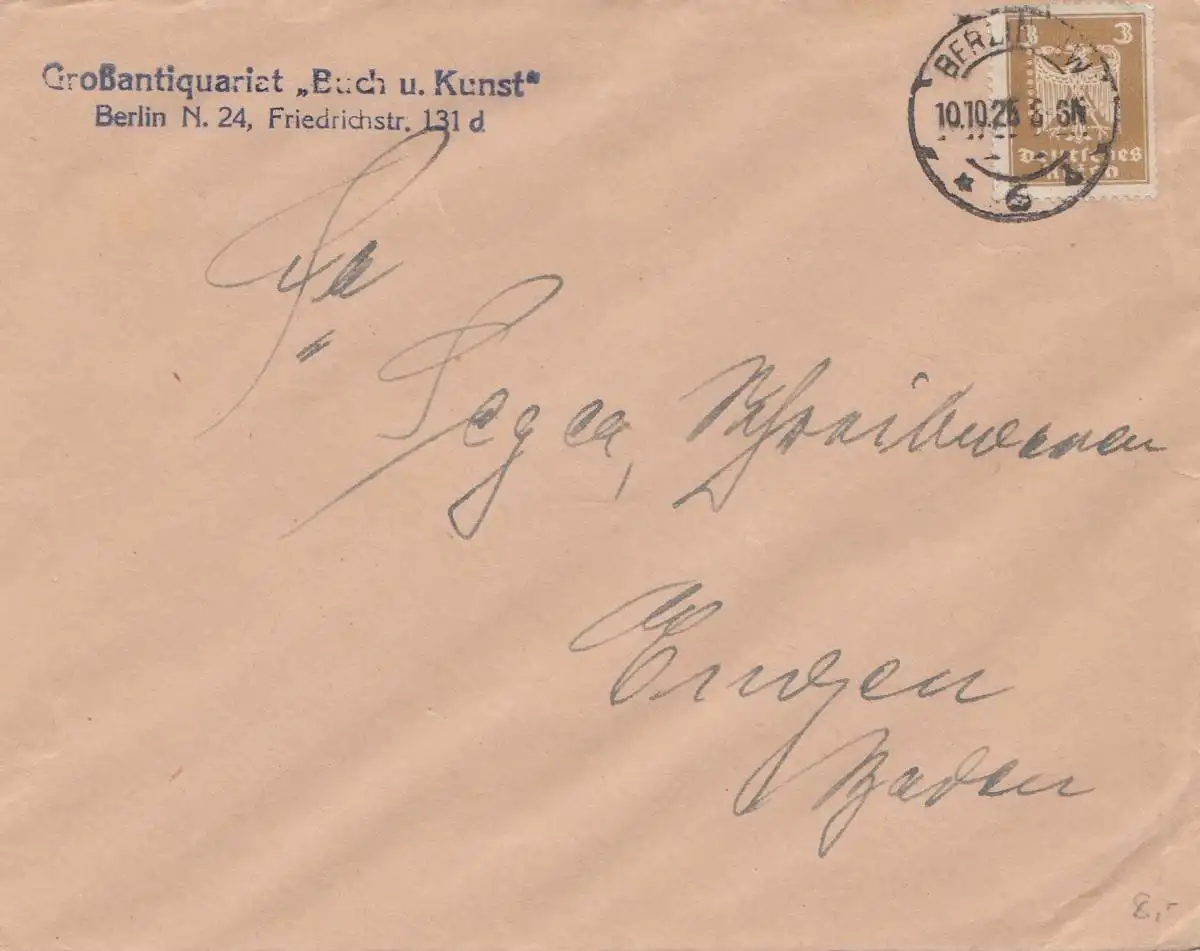 Großantiquariat „Buch u. Kunst“
Berlin N. 24, Friedrichstr. 131 d
BERLIN NW
10.10.25 8-9N
* 6 b
3 3
Deutsches
Reich
Fa
Schreibwaren
Engen
Baden